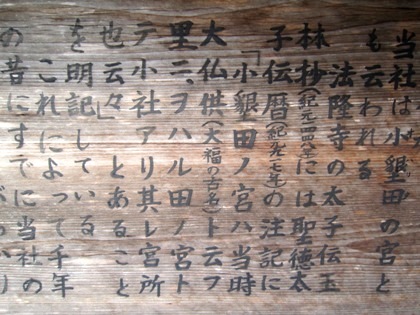 当社は小墾田の宮と
も云われる
法隆寺の太子伝玉
林抄(紀元四四八)には聖徳太
子伝暦(紀元九七七年)の注記に
「小墾田ノ宮ハ当時
大仏供(大福の古名)ト云フ
里ニ、ヲハル田ノ宮ト
テ小社アリ其レ宮所
也云々」とあること
を明記している
これによって千年
の昔にすでに当社の